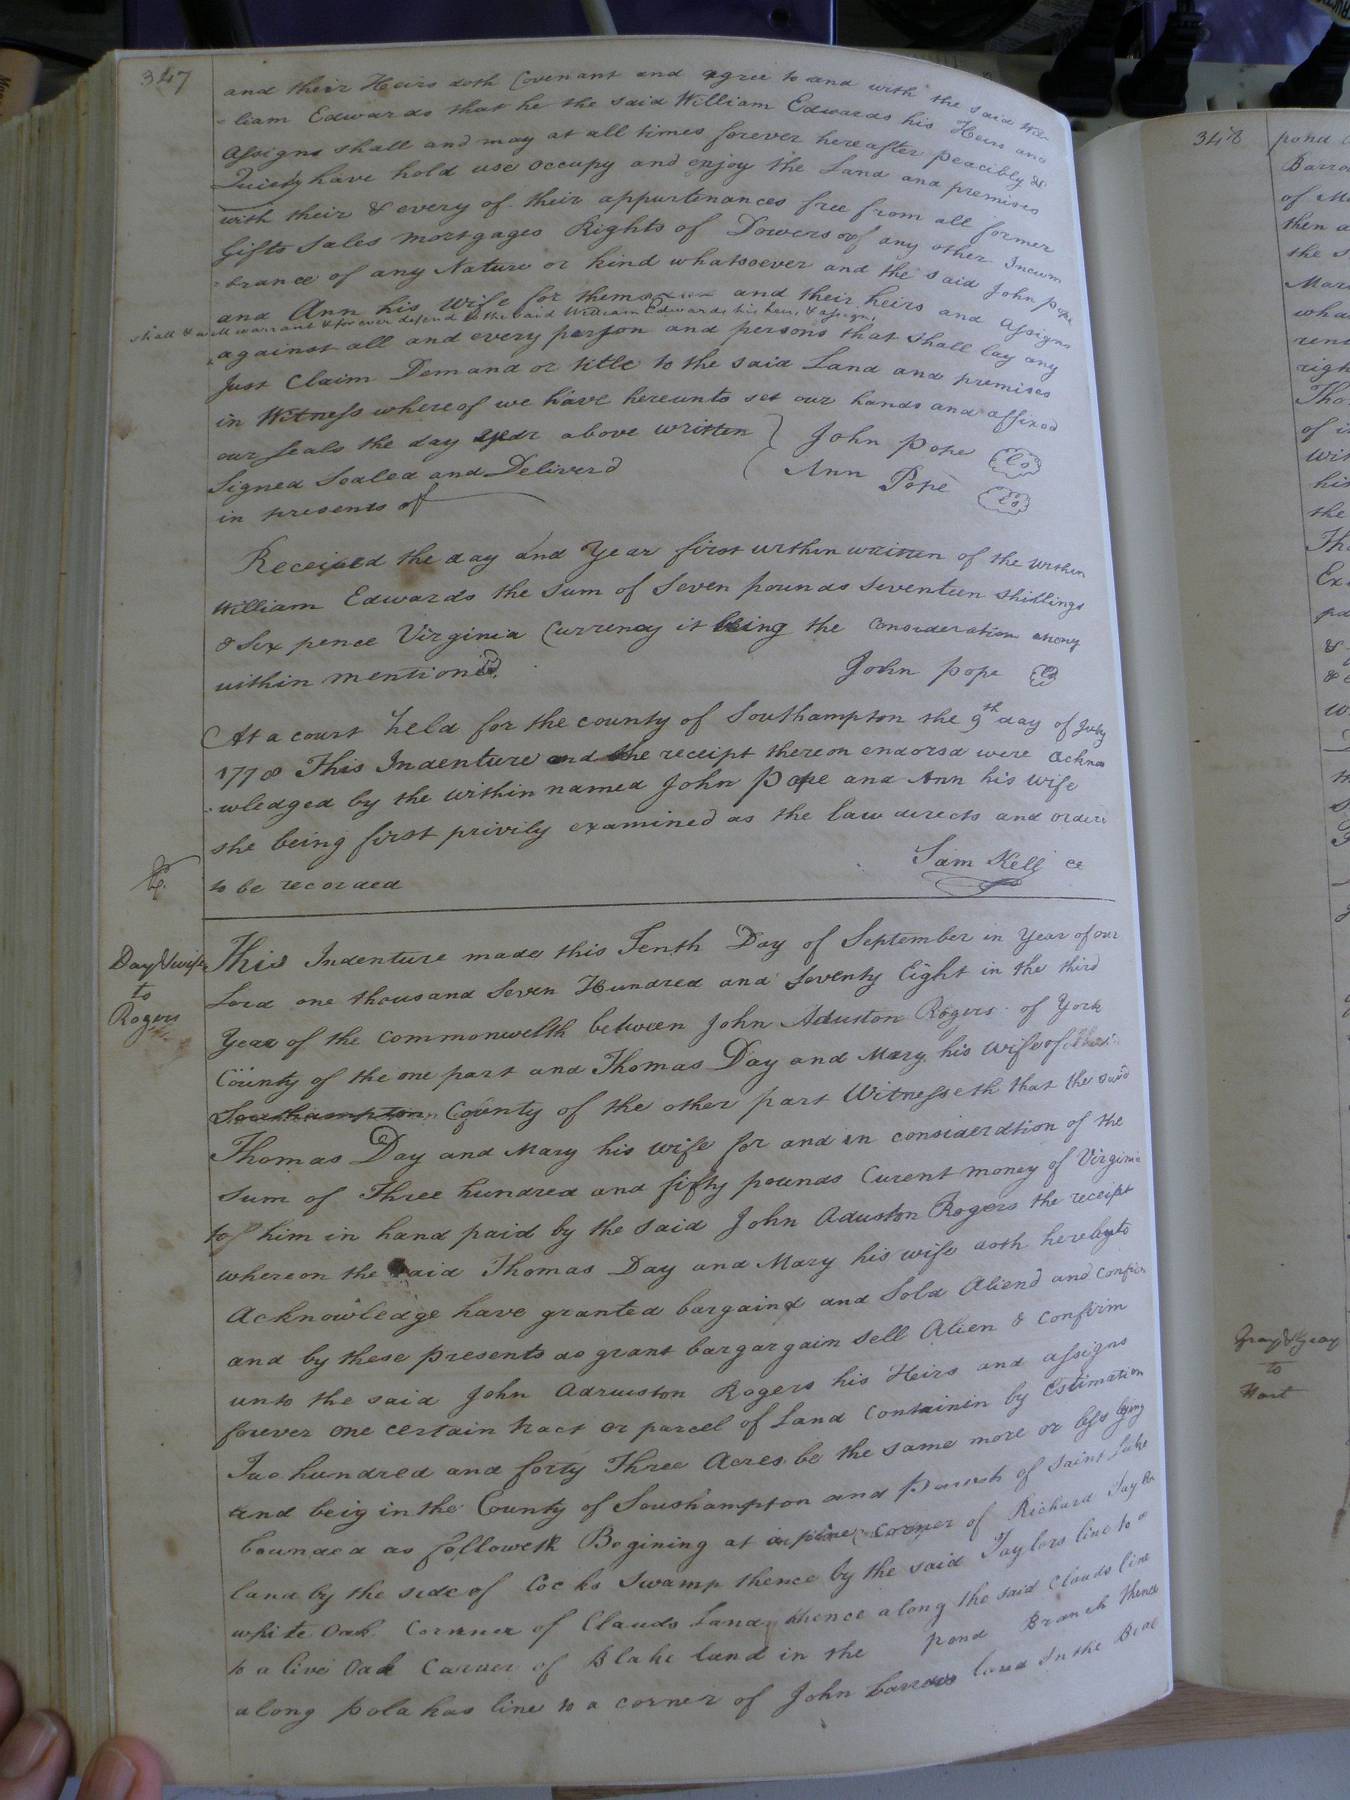 347
and their Heirs doth Covenant and agree to and with the said Wil-
-liam Edwards that he the said William Edwards his Heirs and
Assigns shall and may at all times forever hereafter peacibly &
Quietly have hold use occupy and enjoy the Land and premises
with their & every of their appurtenances free from all former
Gifts Sales mortgages Rights of Dowers of any other Incum
-brance of any Nature or kind whatsoever and the said John Pope
and Ann his Wife for them and their heirs and Assigns
shall & will warrant & forever defend to the said William Edwards his heirs & assigns
against all and every person and persons that shall lay any
Just Claim Demand or title to the said Land and premises
in Witness whereof we have hereunto set our hands and affixed
our seals the day year above written
John Pope Ls
Signed Sealed and Deliver'd
Ann Pope Ls
in presents of
Received the day and Year first within written of the within
William Edwards the sum of Seven pounds Seventeen Shillings
& Six pence Virginia Currency it being the consideration money
within mentioned.
John Pope Ls
At a court held for the county of Southampton the 9th day of July
1778 This Indenture and the receipt thereon endorsd were ackno
-wledged by the within named John Pope and Ann his wife
she being first privily examined as the law directs and orderd
to be recorded
Sam Kell cc
Day & wife
to
Rogers
This Indenture made this Tenth Day of September in Year of our
Lord one thousand Seven Hundred and Seventy Eight in the third
Year of the Commonwelth between John Aduston Rogers of York
County of the one part and Thomas Day and Mary his wife of
Southampton County of the other part Witnesseth that the said
Thomas Day and Mary his wife for and in consideration of the
Sum of Three hundred and fifty pounds Curent money of Virginia
to him in hand paid by the said John Aduston Rogers the receipt
whereon the said Thomas Day and Mary his wife doth hereby to
Acknowledge have granted bargaind and Sold Aliend and Confir
and by these presents do grant bargargain sell Alien & Confirm
unto the said John Adruston Rogers his Heirs and assigns
forever one certain tract or parcel of Land Containin by Estimation
Two hundred and forty Three Acres be the same more or less lying
and beig in the County of Southampton and Parish of Saint Luke
bounded as followeth Begining at a pine corner of Richard Taylor
land by the side of Cocks Swamp thence by the said Taylors line to a
white Oak Cornner of Clauds Land thence along the said Clauds line
to a live Oak Corner of Blake land in the pond Branch thence
along pola kas line to a corner of John barrows land in the Beal
348
pond
Barro
of M
then a
the s
Mar
wha
righ
Tho
of i
wit
hi
the
Gray & Gray
to
Hart